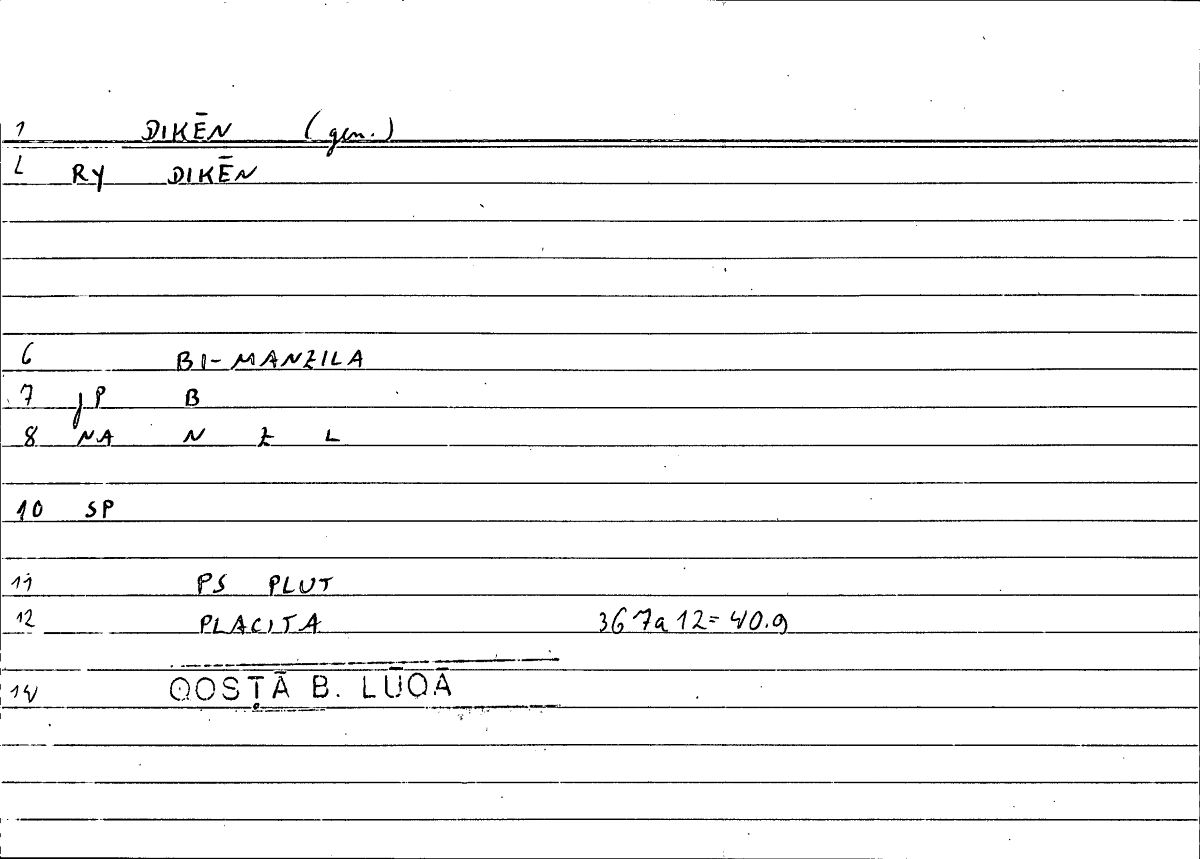 1 DIKĒN (gen.)
2 RY DIKĒN
6 BI-MANZILA
7 JP B
8 NA N Z L
10 SP
11 PS PLUT
12 PLACITA 367a12=40.9
14 QOSṬĀ B. LŪQĀ